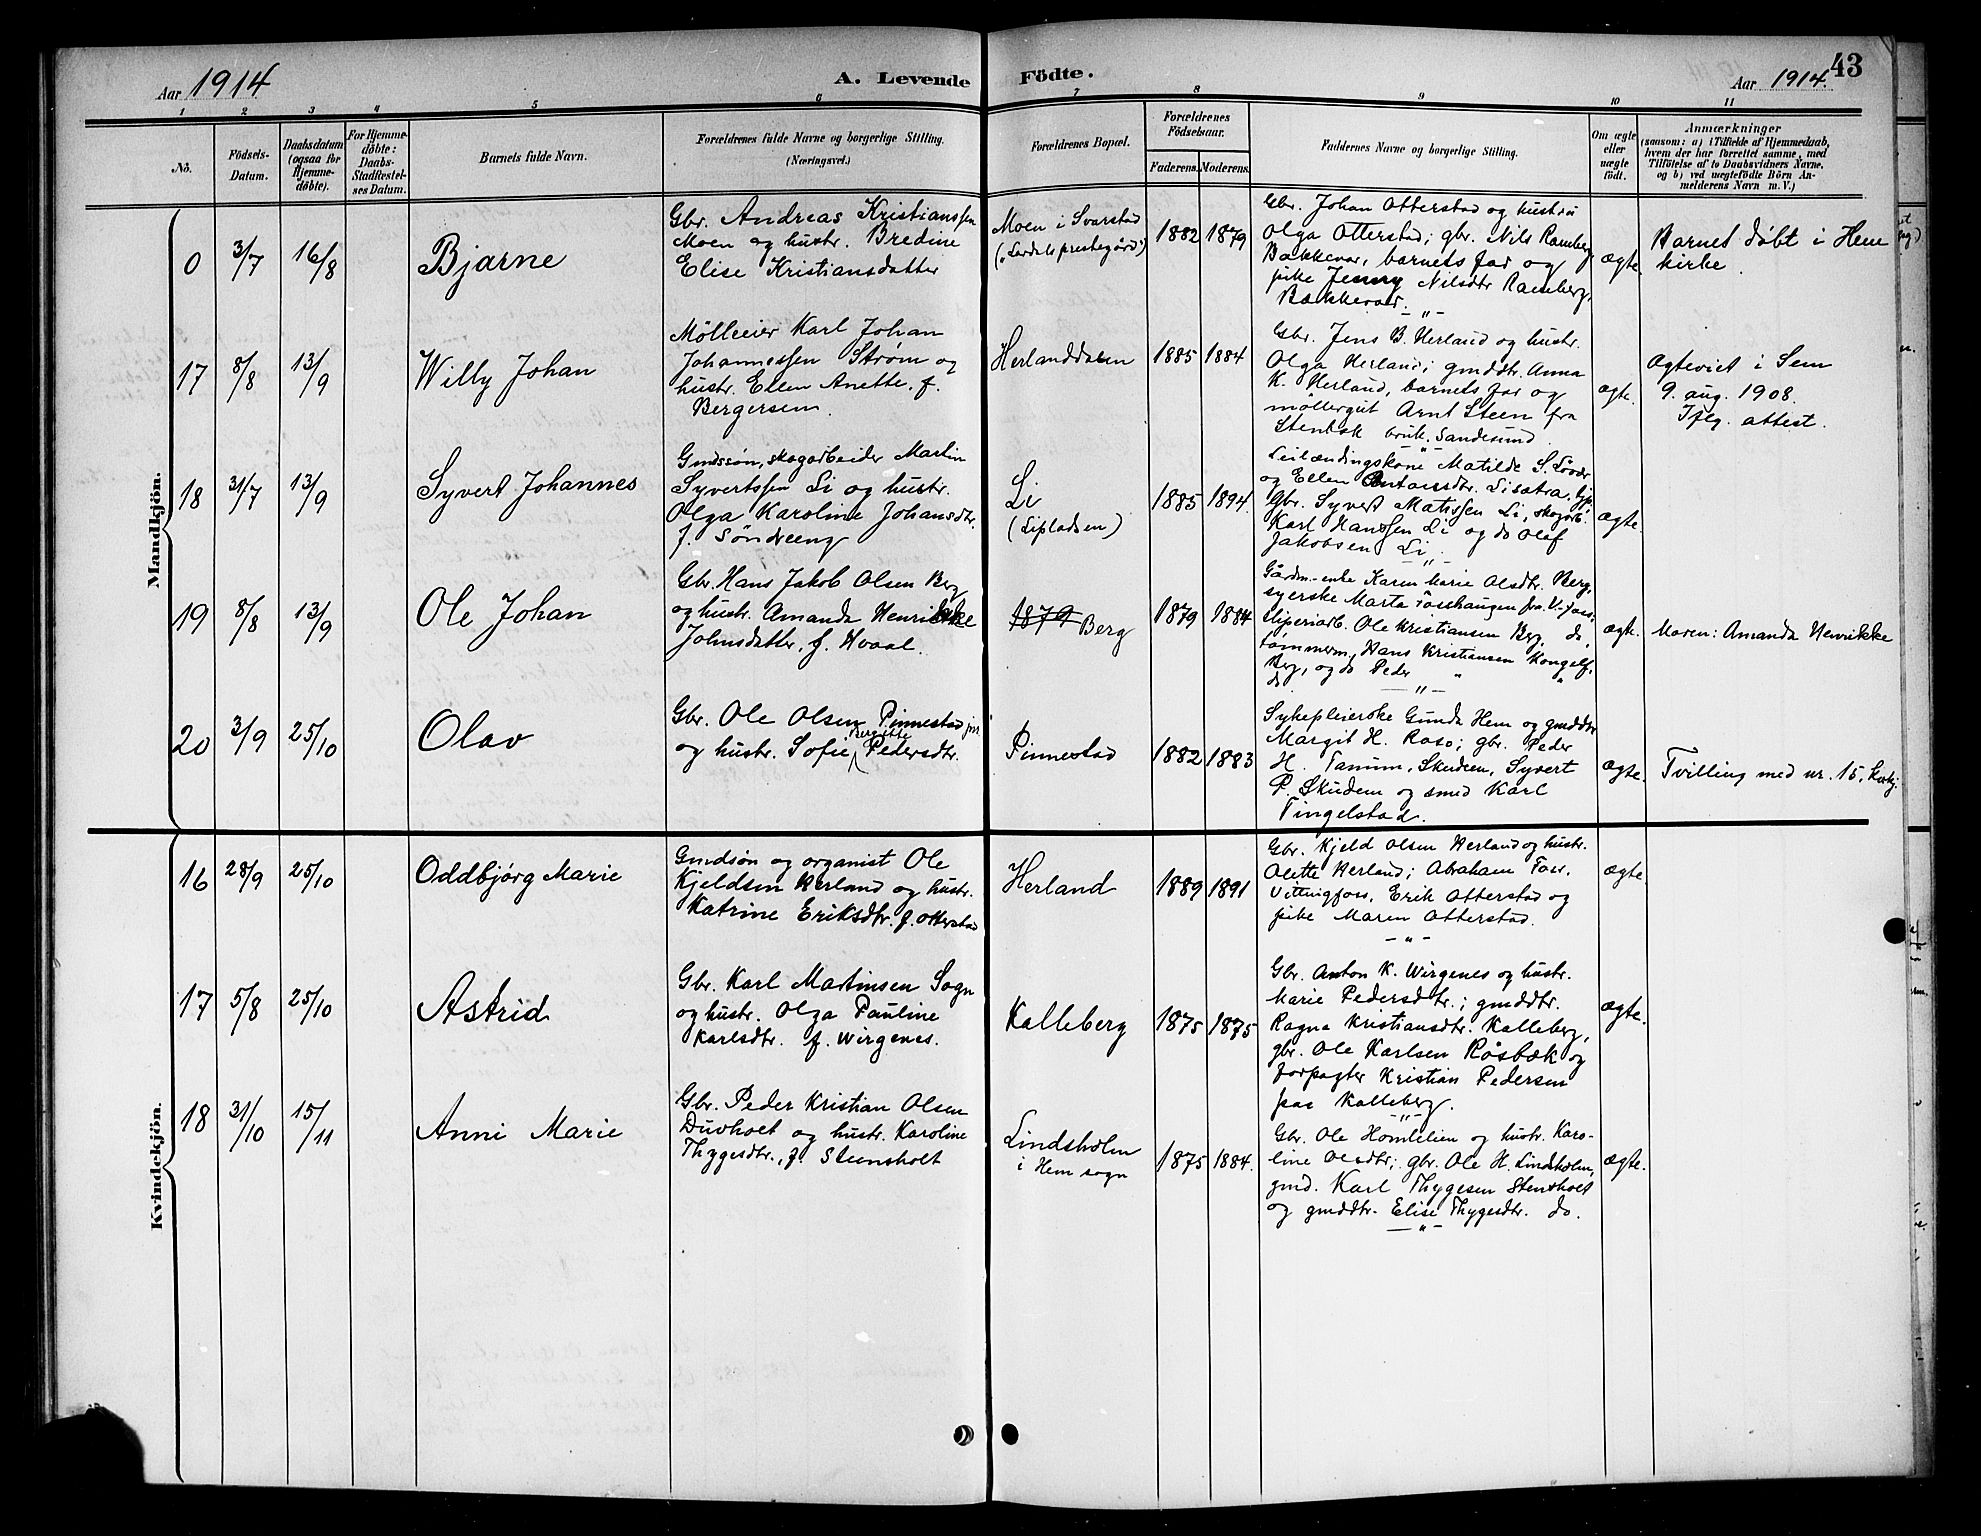 Aar 1914
A. Levende
1 2 3 4 5 6
Nô.
Födsels-Datum.
Daabsdatum (ogsaa for Hjemme-döbte).
For Hjemme-döbte: Daabs-Stadfæstel-ses Datum.
Barnets fulde Navn.
Forældrenes fulde Navne og borgerlige Stilling.
(Næringsvei.)
Födte.
Aar 1914.
43
7 8 9 10 11
Forældrenes Bopæl.
Forældrenes Födselsaar.
Faderens. Moderens.
Faddernes Navne og borgerlige Stilling.
Om ægte eller uægte födt.
Anmærkninger
(saasom: a) i Tilfælde af Hjemmedaab,
hvem der har forrettet samme, med
Tilföielse af to Daabsvidners Navne,
og b) ved uægtefödte Börn An-
melderens Navn m. V.)
Mandkjön.
0 3/7 16/8 Bjarne
Gbr. Andreas Kristianssen
Moen og hustr. Bredine
Elise Kristiansdatter
Moen i Svarstad
("Lardals prestegård")
1882 1879
Gbr. Johan Otterstad og hustru
Olga Otterstad; gbr. Nils Ramberg
Bakkevar, barnets far og
pike Jenny Nilsdtr Ramberg,
Bækkevar.
-"-
ægte.
Barnet döbt i Hem
kirke.
17 8/8 13/9 Willy Johan
Mölleeier Karl Johan
Johannessen Strøm og
hustr. Ellen Anette, f.
Bergersen.
Herlanddalen
1885 1884
Gbr. Jens B. Herland og hustr.
Olga Herland; gmddtr. Anna
K. Herland, barnets far og
möllergut Arnt Steen fra
Stenbek bruk, Sandesund.
ægte.
Ægteviet i Sem
9. aug. 1908.
Iflg. attest.
18 31/7 13/9 Syvert Johannes
Gmdssøn, skogarbeider Martin
Syvertssen Li og hustr.
Olga Karoline Johansdtr.
f. Søndreeng
Li
(Lipladsen)
1885 1894
Leilændingskone Matilde S.
og Ellen Antonsdtr. Lisætra,
Gbr. Syvert Matissen Li, skogarb.
Karl Hanssen Li og do Olaf
Jakobsen Li.
-"-
ægte.
19 8/8 13/9 Ole Johan
Gbr. Hans Jakob Olsen Berg
og hustr. Amanda Henrikke
Johnsdatter, f. Hvaal.
1879 Berg
1879 1884
Gårdm.-enke Karen Marie Olsdtr. Berg,
syerske Marta Fosshaugen fra V-foss,
sliperiarb. Ole Kristiansen Berg, do,
tømmerm. Hans Kristiansen Kongelf,
Berg, og do Peder " "
do. -"-
ægte.
Moren: Amanda Henrikke
20 3/9 25/10 Olav
Gbr. Ole Olsen Pinnestad jnr
og hustr. Sofie Bergitte Pedersdtr.
Pinnestad
1882 1883
Sykepleierske Gunda Hem og gmddtr
Margit H. Raso; gbr. Peder
H. Tanum, Skudem, Syvert
P. Skudem og smed Karl
Tingelstad.
ægte.
Tvilling med nr. 15,
Kvindekjön.
16 28/9 25/10 Oddbjørg Marie
Gmdsøn og organist Ole
Kjeldsen Herland og hustr.
Katrine Eriksdtr. f. Otterstad
Herland
1889 1891
Gbr. Kjeld Olsen Herland og hustr.
Alette Herland; Abraham Foss,
Vittingfoss, Erik Otterstad og
pike Maren Otterstad.
-"-
ægte.
17 5/8 25/10 Astrid
Gbr. Karl Martinsen Sogn
og hustr. Olga Pauline
Karlsdtr. f. Wirgenes.
Kalleberg
1875 1875
Gbr. Anton K. Wirgenes og hustr.
Marie Pedersdtr.; gmddtr.
Ragna Kristiansdtr. Kalleberg,
gbr. Ole Karlsen Røsbæk og
forpagter Kristian Pedersen
paa Kalleberg.
-"-
ægte.
18 31/10 15/11 Anni Marie
Gbr. Peder Kristian Olsen
Duvholt og hustr. Karoline
Thygesdtr., f. Steensholt
Lindsholm
i Hem sogn
1875 1884.
Gbr. Ole Homlelien og hustr. Karo-
line Olsdtr; gbr. Ole H. Lindsholm,
gmd. Karl Thygesen Stensholt
og gmddtr. Elise Thygesdtr. do.
-"-
ægte.